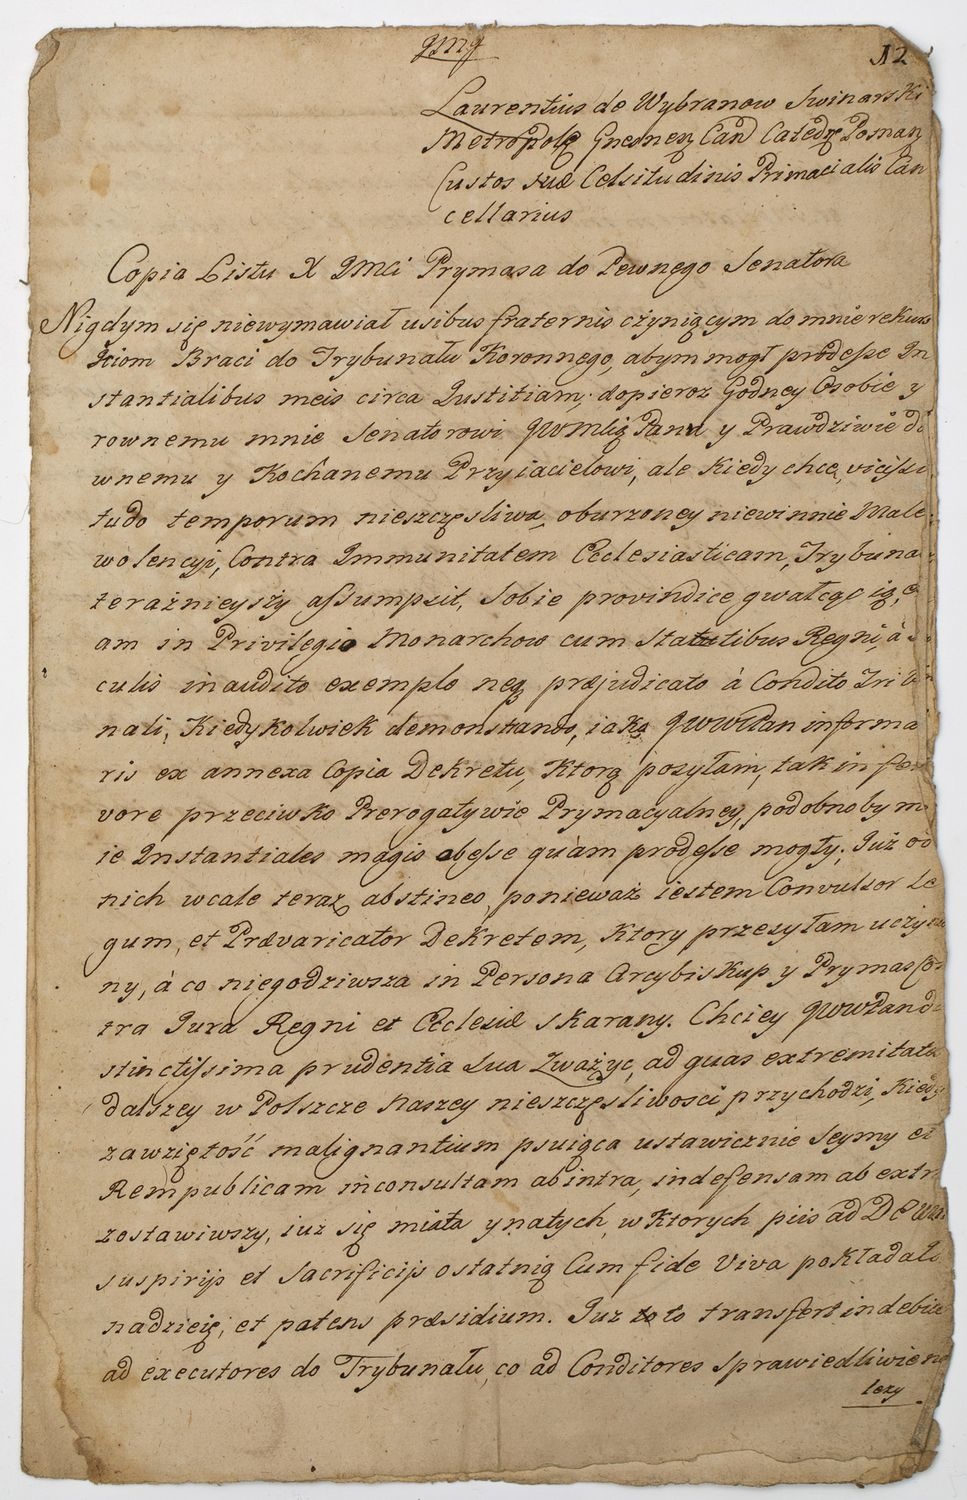 12
Laurentius de Wybranow Swinarski
Metropolę Gnesnę Can Catedrę Posnan
Custos suæ Celsitudinis Primacialis Can
cellarius
Copia Listu X JMci Prymasa do Pewnego Senatora
Nigdym się niewymawiał usibus fraternis czyniącym do mnie
Braci do Trybunału Koronnego, abym mogł prodesse In
stantialibus meis circa Justitiam, dopieroz Godney Osobie y
rownemu mnie Senatorowi Pana y Prawdziwie da
wnemu y Kochanemu Przyiacielowi, ale Kiedy chce, vicissi
tudo temporum nieszczęsliwa, oburzoney niewinnie Male
wolencyi, Contra Immunitatem Ecclesiasticam, Trybuna
teraznieyszy assumpsit, Sobie provindice gwałcąc ią, e
am in Privilegio Monarchow cum Statutibus Regni, à Sæ
culis inaudito exemplo neq præjudicato à Condito Tribu
nali, Kiedykolwiek demonstando, iako JWWPan informa
ris ex annexa Copia Dekretu, Ktorą posyłam, tak in fer
vore przeciwko Prerogatywie Prymacyalney, podobnoby m
ie Instantiales magis obesse quàm prodesse mogły; Juz od
nich wcale teraz abstineo, ponieważ iestem Convulsor Le
gum, et Prævaricator Dekretem, Ktory przesyłam uczynio
ny, à co niegodziwsza in Persona Arcybiskup y Prymas Con
tra Jura Regni et Ecclesiæ skarany. Chciey JWWPan di
stinctissima prudentia Sua Zważyc, ad quas extremitates
dalszey w Polszcze Naszey nieszczęsliwosci przychodzi, Kiedy
zawziętość malignantium psuiąca ustawicznie Seymy et
Rempublicam inconsultam ab intra, indefensam ab extra
zostawiwszy, iuz się miała y natych, w Ktorych piis ad DEum
suspirijs et Sacrificijs ostatnią Cum fide Viva pokładało
nadzieię, et patens præsidium. Juz to to transfert indebite
ad executores do Trybunału, co ad Conditores sprawiedliwie na
lezy